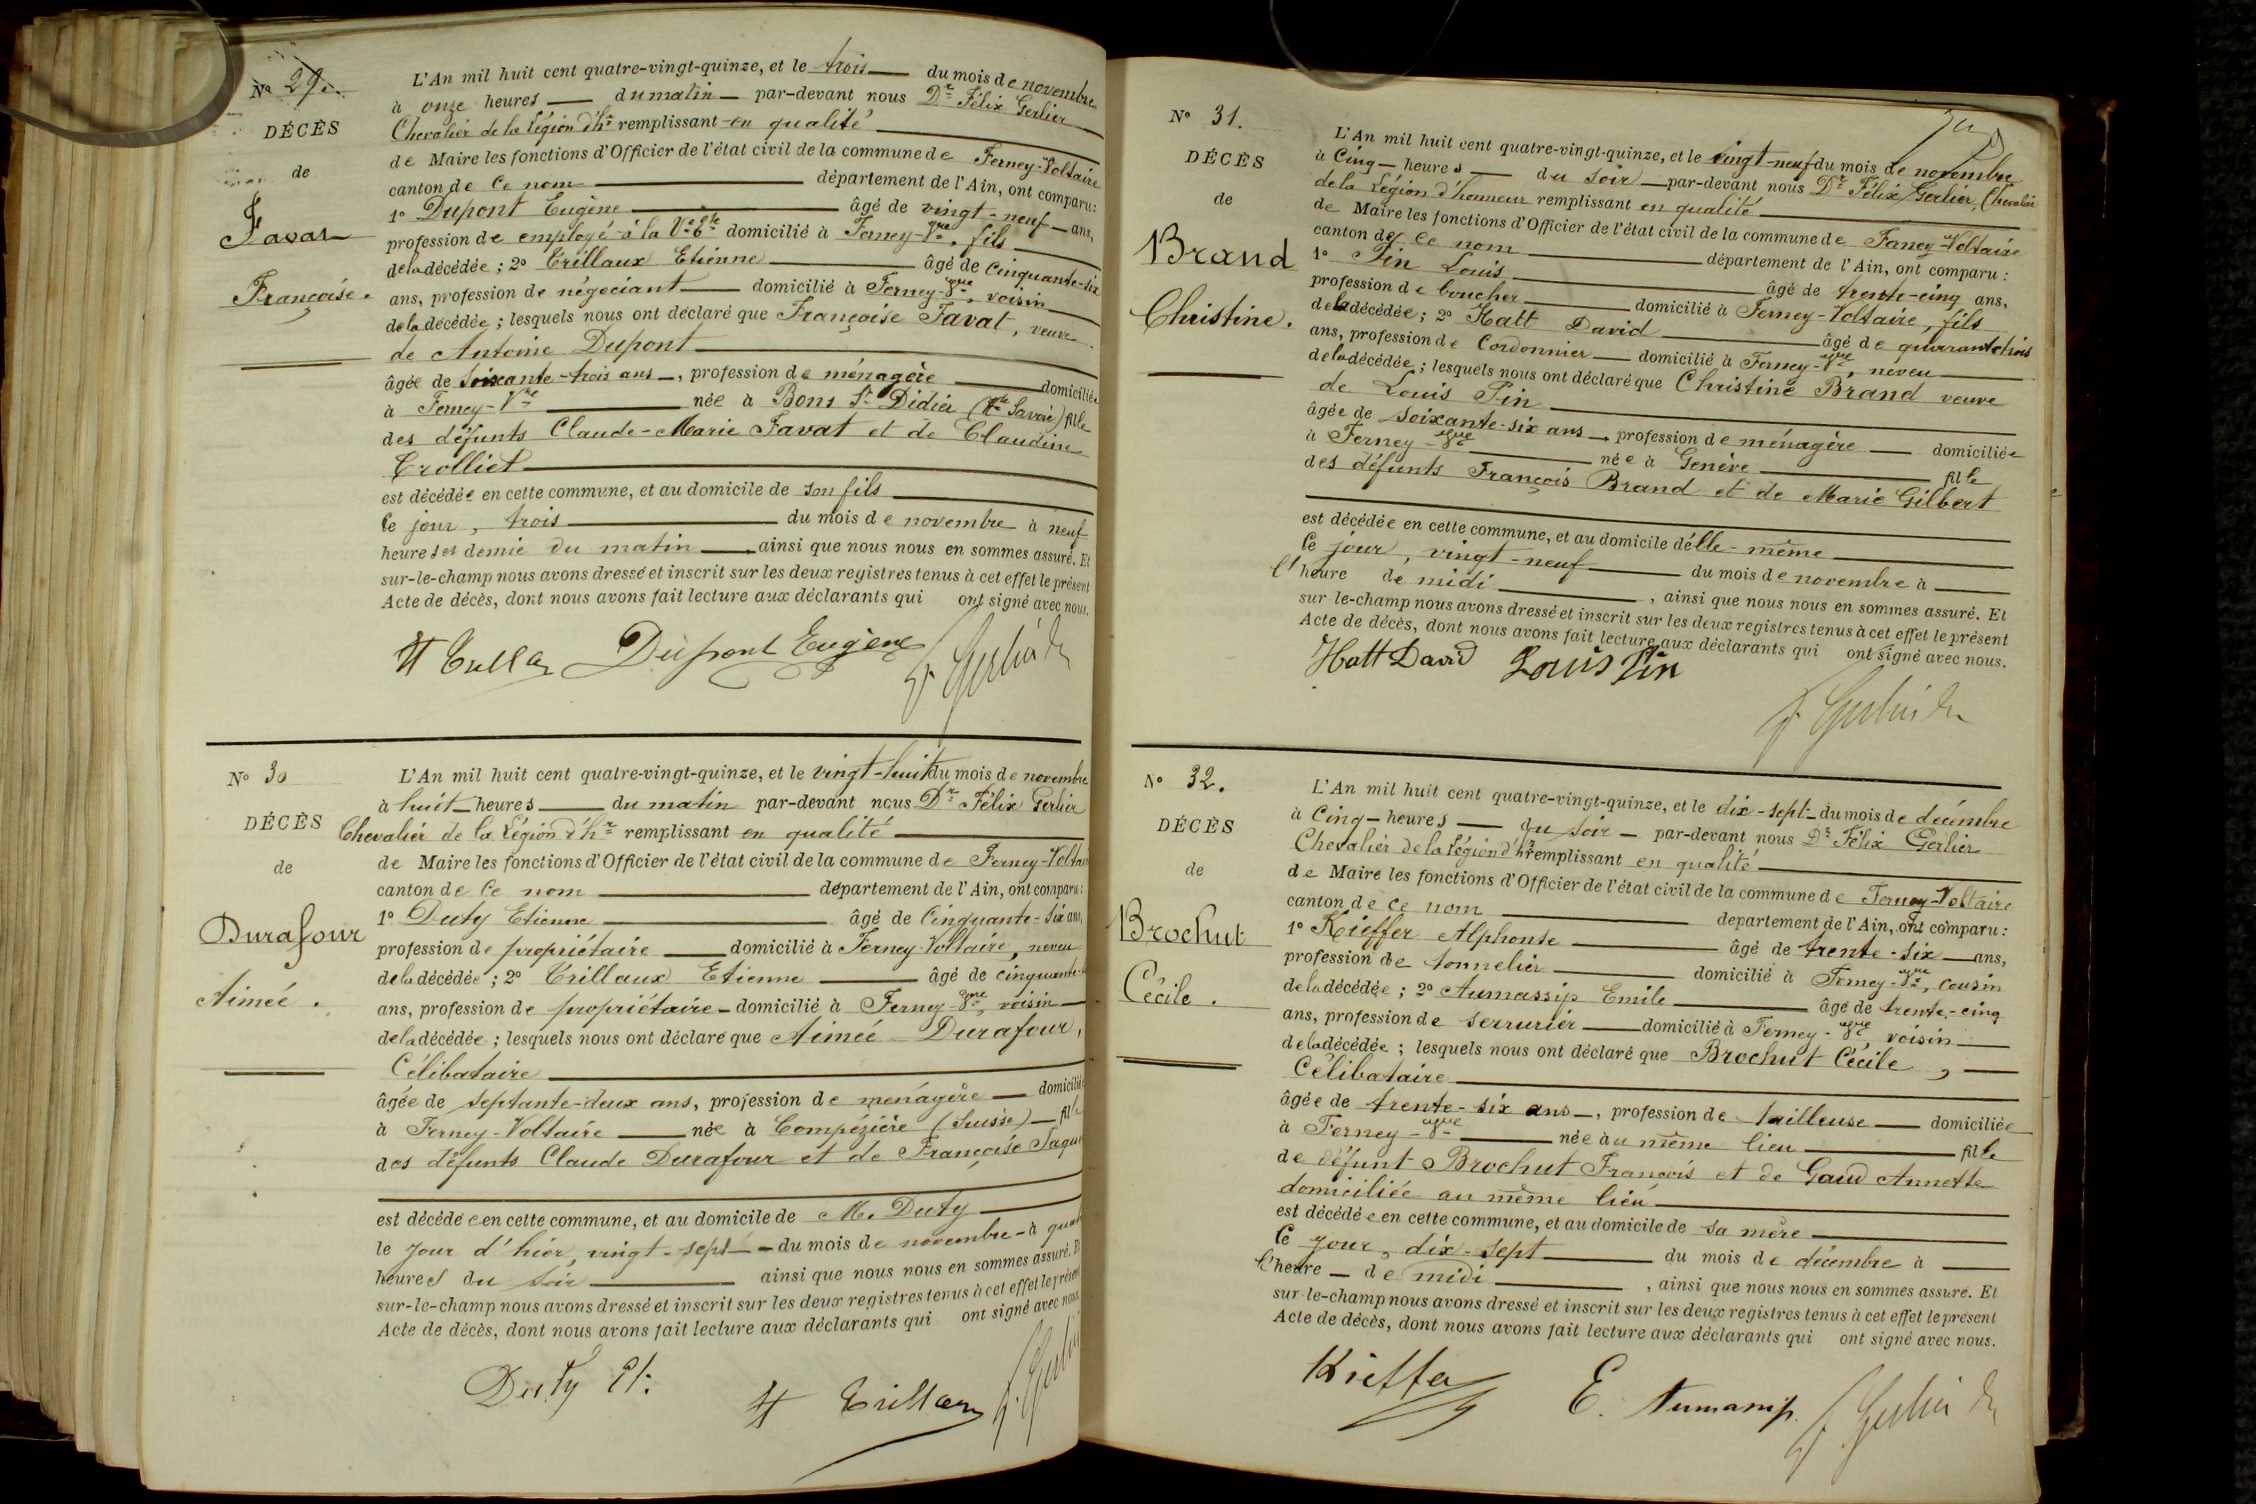 N° 29.
DÉCÈS
de
Favat
Françoise.
L'An mil huit cent quatre-vingt-quinze, et le trois du mois de novembre
à onze heures du matin par-devant nous Dr Félix Gerlier
Chevalier de la Légion d'hr remplissant en qualité
de Maire les fonctions d'Officier de l'état civil de la commune de Ferney-Voltaire
canton de ce nom département de l'Ain, ont comparu:
1° Dupont Eugène âgé de vingt-neuf ans,
profession de employé à la domicilié à Ferney-Vre, fils
de la décédée; 2° Trillaux Etienne âgé de cinquante-six
ans, profession de négociant domicilié à Ferney-Vre, voisin
de la décédée; lesquels nous ont déclaré que Françoise Favat, veuve
de Antoine Dupont
âgée de soixante-trois ans, profession de ménagère domiciliée
à Ferney-Vre née à Bons St Didier (Hte Savoie) fille
des défunts Claude-Marie Favat et de Claudine
Trolliet
est décédée en cette commune, et au domicile de son fils
Ce jour, trois du mois de novembre à neuf
heures et demie du matin ainsi que nous nous en sommes assuré. Et
sur-le-champ nous avons dressé et inscrit sur les deux registres tenus à cet effet le présent
Acte de décès, dont nous avons fait lecture aux déclarants qui ont signé avec nous.
Dupont Eugène
N° 30
DÉCÈS
de
Durafour
Aimée.
L'An mil huit cent quatre-vingt-quinze, et le vingt-huit du mois de novembre
à huit heures du matin par-devant nous Dr Félix Gerlier
Chevalier de la Légion d'hr remplissant en qualité
de Maire les fonctions d'Officier de l'état civil de la commune de Ferney-Voltai
canton de ce nom département de l'Ain, ont comparu:
1° Duty Etienne âgé de Cinquante-six ans,
profession de propriétaire domicilié à Ferney-Voltaire, neveu
de la décédée; 2° Trillaux Etienne âgé de cinquante-
ans, profession de propriétaire domicilié à Ferney-Vre, voisin
de la décédée; lesquels nous ont déclaré que Aimée Durafour,
Célibataire
âgée de septante-deux ans, profession de ménagère domiciliée
à Ferney-Voltaire née à Compézière (Suisse) fille
des défunts Claude Durafour et de Françoise Jaque
est décédée en cette commune, et au domicile de M. Duty
le jour d'hier, vingt-sept du mois de novembre à quat
heures du soir ainsi que nous nous en sommes assuré. Et
sur-le-champ nous avons dressé et inscrit sur les deux registres tenus à cet effet le présent
Acte de décès, dont nous avons fait lecture aux déclarants qui ont signé avec nous.
Duty Et.
N° 31.
DÉCÈS
de
Brand
Christine.
L'An mil huit cent quatre-vingt-quinze, et le vingt-neuf du mois de novembre
à Cinq heures du soir par-devant nous Dr Félix Gerlier, Chevalier
de la Légion d'honneur remplissant en qualité
de Maire les fonctions d'Officier de l'état civil de la commune de Ferney-Voltaire
canton de ce nom département de l'Ain, ont comparu:
1° Pin Louis âgé de trente-cinq ans,
profession de boucher domicilié à Ferney-Voltaire, fils
de la décédée; 2° Hatt David âgé de quarante trois
ans, profession de Cordonnier domicilié à Ferney-Vre, neveu
de la décédée; lesquels nous ont déclaré que Christine Brand veuve
de Louis Pin
âgée de soixante-six ans, profession de ménagère domiciliée
à Ferney-Vre née à Genève fille
des défunts François Brand et de Marie Gilbert
est décédée en cette commune, et au domicile d'elle-même
Ce jour, vingt-neuf du mois de novembre à
l'heure de midi, ainsi que nous nous en sommes assuré. Et
sur-le-champ nous avons dressé et inscrit sur les deux registres tenus à cet effet le présent
Acte de décès, dont nous avons fait lecture aux déclarants qui ont signé avec nous.
Hatt David Louis Pin
N° 32.
DÉCÈS
de
Brochut
Cécile.
L'An mil huit cent quatre-vingt-quinze, et le dix-sept du mois de décembre
à Cinq heures du soir par-devant nous Dr Félix Gerlier
Chevalier de la Légion d'hr remplissant en qualité
de Maire les fonctions d'Officier de l'état civil de la commune de Ferney-Voltaire
canton de ce nom département de l'Ain, ont comparu:
1° Kieffer Alphonse âgé de trente-six ans,
profession de tonnelier domicilié à Ferney-Vre, cousin
de la décédée; 2° Aumassip Emile âgé de trente-cinq
ans, profession de serrurier domicilié à Ferney-Vre, voisin
de la décédée; lesquels nous ont déclaré que Brochut Cécile,
Célibataire
âgée de trente-six ans, profession de tailleuse domiciliée
à Ferney-Vre née au même lieu fille
de défunt Brochut François et de Gaud Annette
domiciliée au même lieu
est décédée en cette commune, et au domicile de sa mère
Ce jour, dix-sept du mois de décembre à
l'heure de midi, ainsi que nous nous en sommes assuré. Et
sur-le-champ nous avons dressé et inscrit sur les deux registres tenus à cet effet le présent
Acte de décès, dont nous avons fait lecture aux déclarants qui ont signé avec nous.
Kieffer E. Aumassip